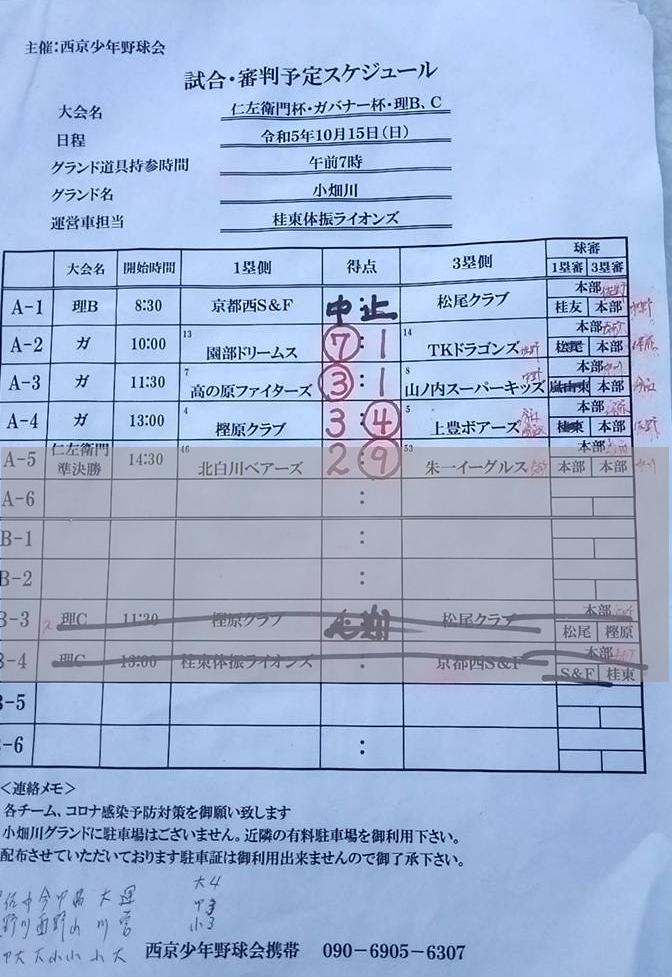 主催:西京少年野球会
試合・審判予定スケジュール
大会名 仁左衛門杯・ガバナー杯・理B、C
日程 令和5年10月15日(日)
グランド道具持参時間 午前7時
グランド名 小畑川
運営車担当 桂東体振ライオンズ
大会名 開始時間 1塁側 得点 3塁側 球審
1塁審 3塁審
A-1 理B 8:30 京都西S&F 中止 松尾クラブ 本部
桂友 本部
A-2 ガ 10:00 13 園部ドリームス 7:1 14 TKドラゴンズ 本部
松尾 本部
A-3 ガ 11:30 7 高の原ファイターズ 3:1 8 山ノ内スーパーキッズ 本部
嵐山東 本部
A-4 ガ 13:00 4 樫原クラブ 3:4 5 上豊ボアーズ 本部
桂東 本部
A-5 仁左衛門準決勝 14:30 46 北白川ベアーズ 2:9 53 朱一イーグルス 本部
本部 本部
A-6 :
B-1 :
B-2 :
B-3 理C 11:30 樫原クラブ 松尾クラブ 本部
松尾 樫原
B-4 理C 13:00 桂東体振ライオンズ : 京都西S&F 本部
S&F 桂東
-5 :
-6 :
<連絡メモ>
各チーム、コロナ感染予防対策を御願い致します
小畑川グランドに駐車場はございません。近隣の有料駐車場を御利用下さい。
配布させていただいております駐車証は御利用出来ませんので御了承下さい。
西京少年野球会携帯 090-6905-6307